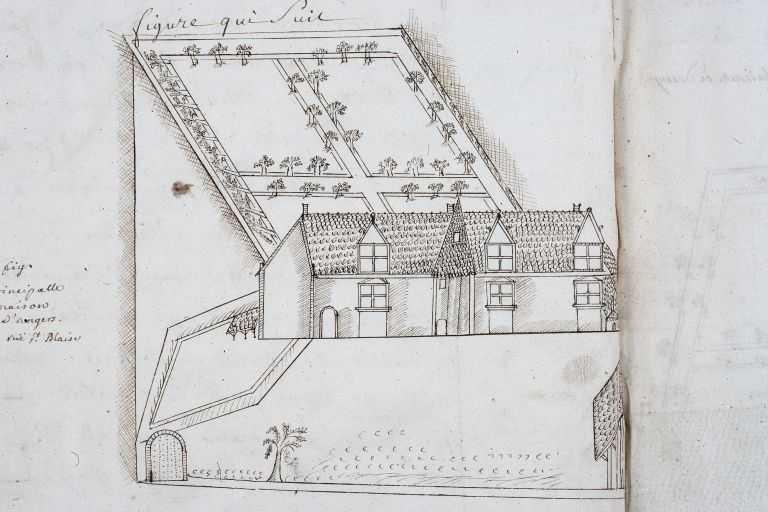 figure qui Suit
fig.
rincipalle
maison
d'angers.
rue St. Blaise